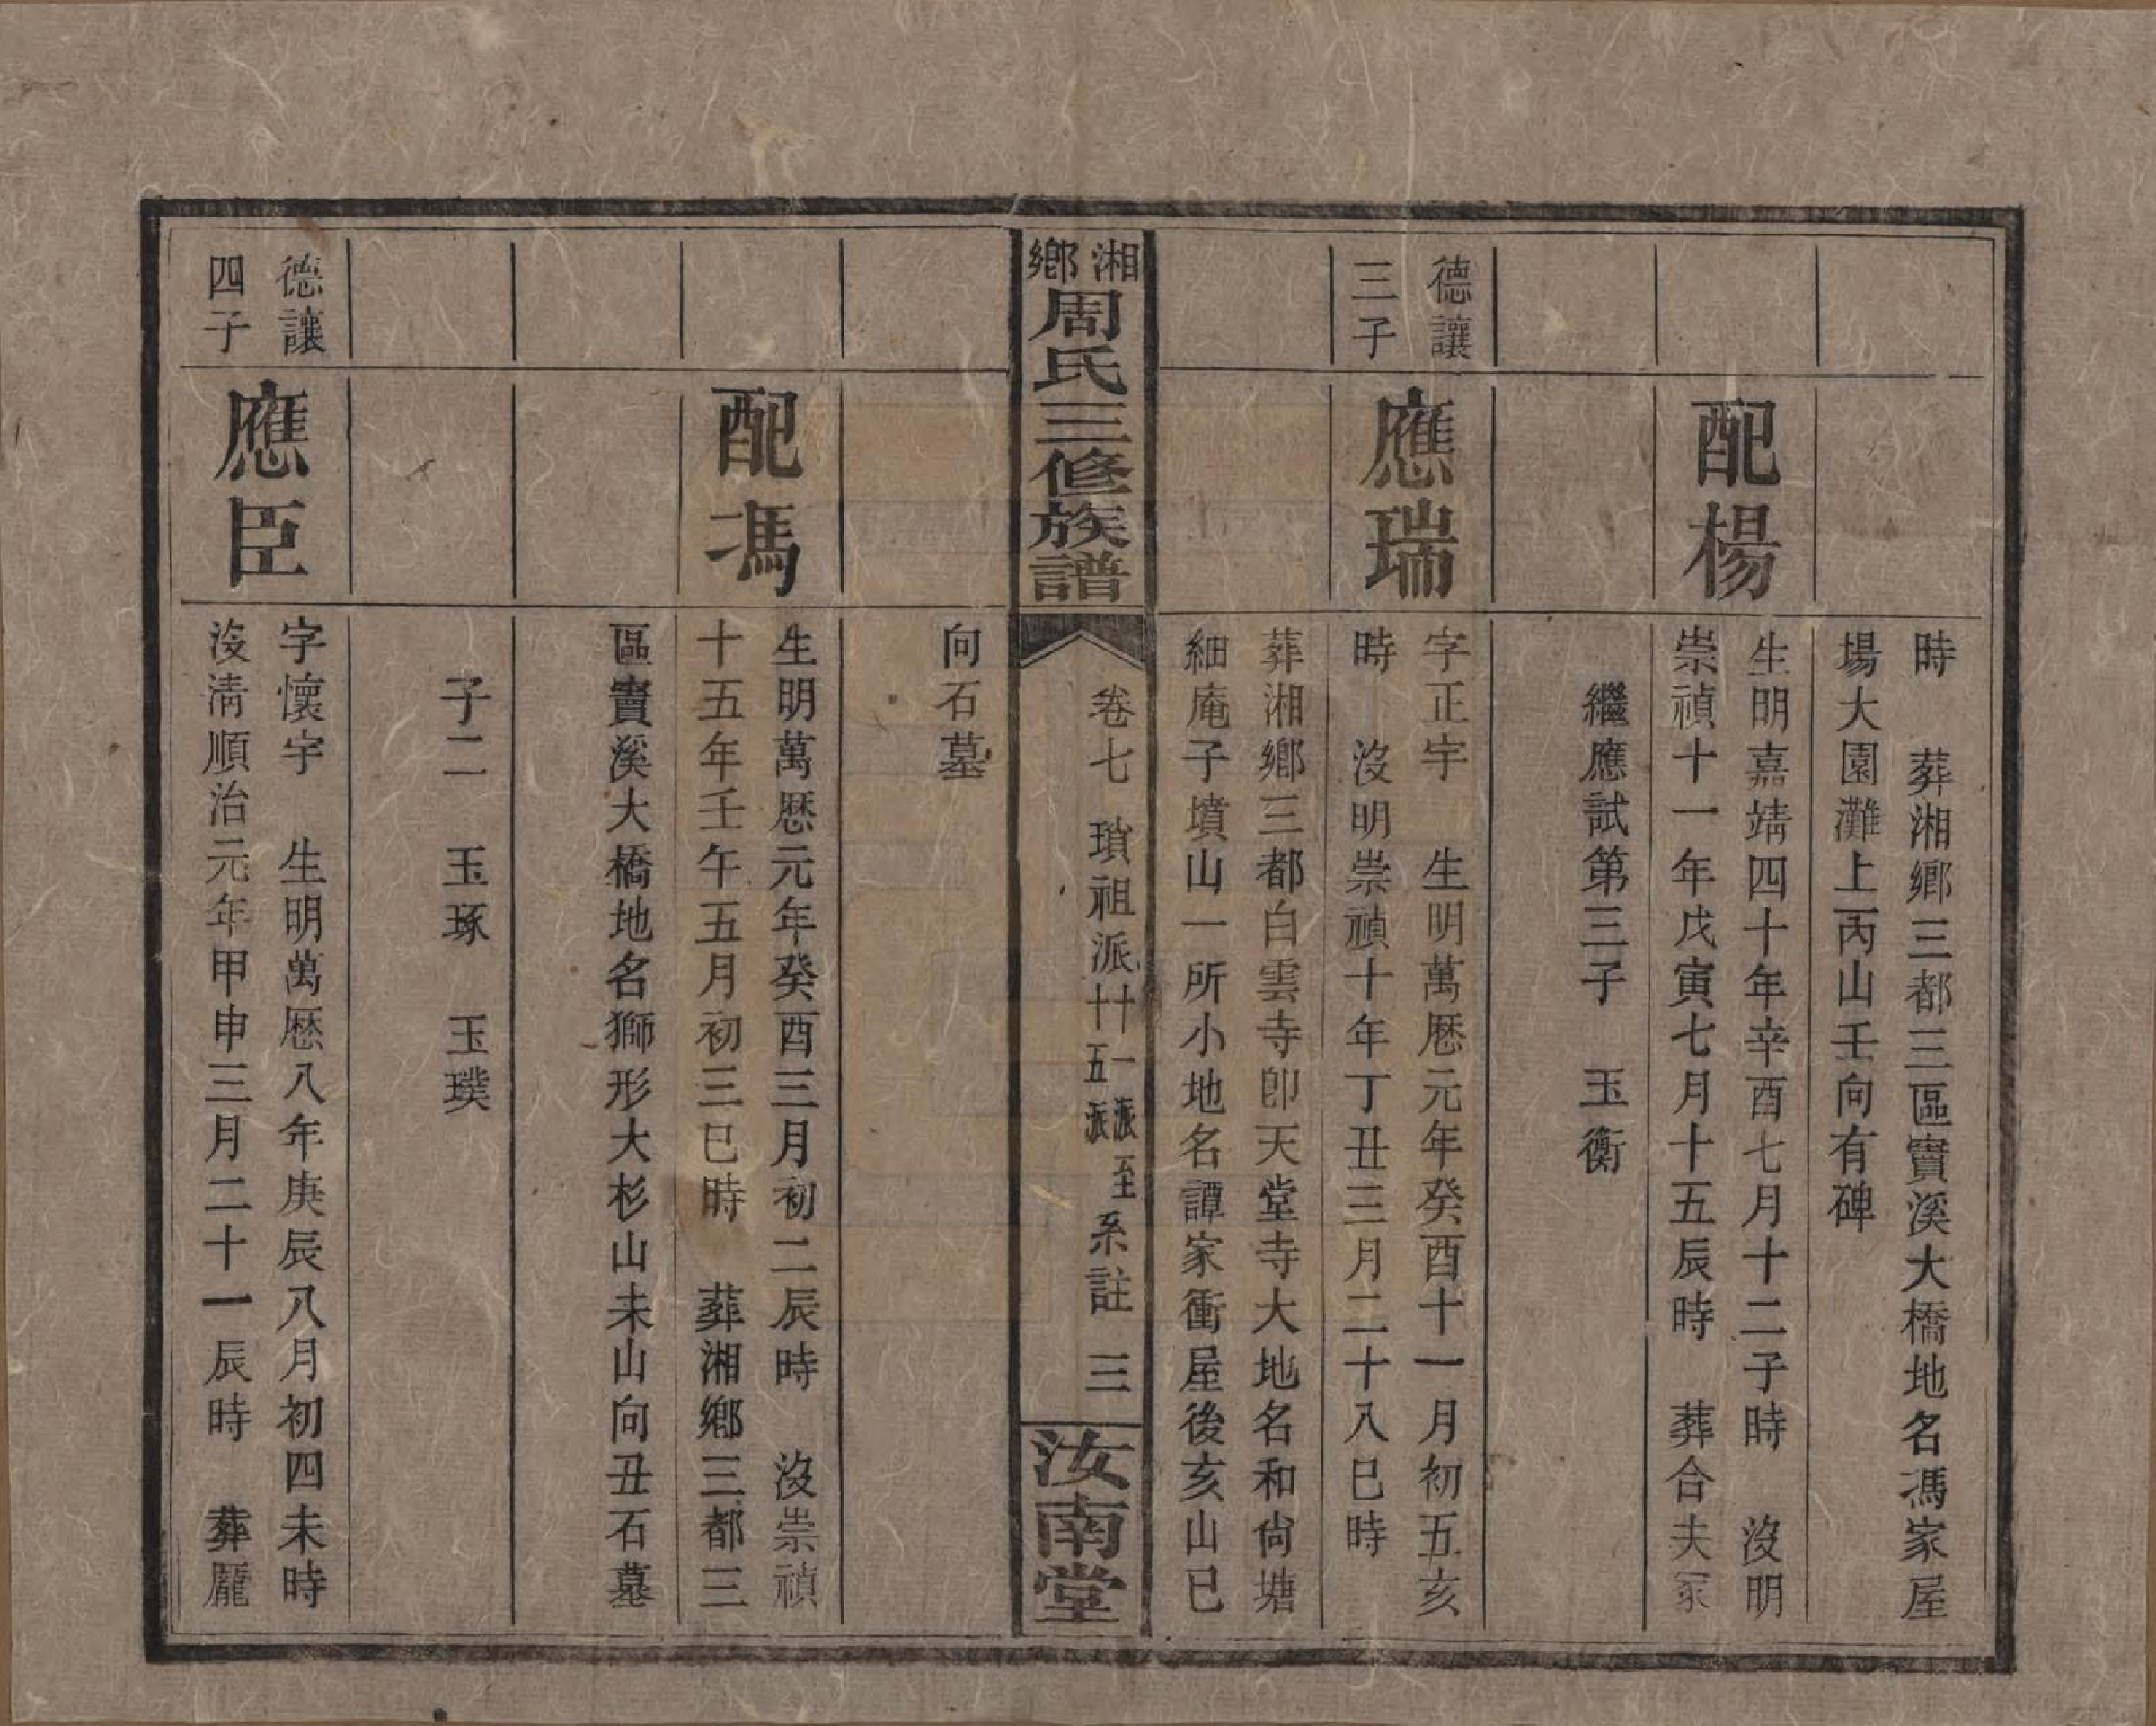 時　葬湘鄉三都三區竇溪大橋地名馮家屋
場大園灘上丙山壬向有碑
配楊
生明嘉靖四十年辛酉七月十二子時　沒明
崇禎十一年戊寅七月十五辰時　葬合夫冢
繼應試第三子　玉衡
德讓
三子
應瑞
字正宇　生明萬厯元年癸酉十一月初五亥
時　沒明崇禎十年丁丑三月二十八巳時
葬湘鄉三都白雲寺卽天堂寺大地名和尙塘
細庵子墳山一所小地名譚家衝屋後亥山巳
湘鄉周氏三修族譜
卷七　瑣祖派十一派至十五派系註　三
汝南堂
向石墓
配馮
生明萬厯元年癸酉三月初二辰時　沒崇禎
十五年壬午五月初三巳時　葬湘鄉三都三
區竇溪大橋地名獅形大杉山未山向丑石墓
子二　玉琢　玉璞
德讓
四子
應臣
字懷宇　生明萬厯八年庚辰八月初四未時
沒淸順治元年甲申三月二十一辰時　葬龎